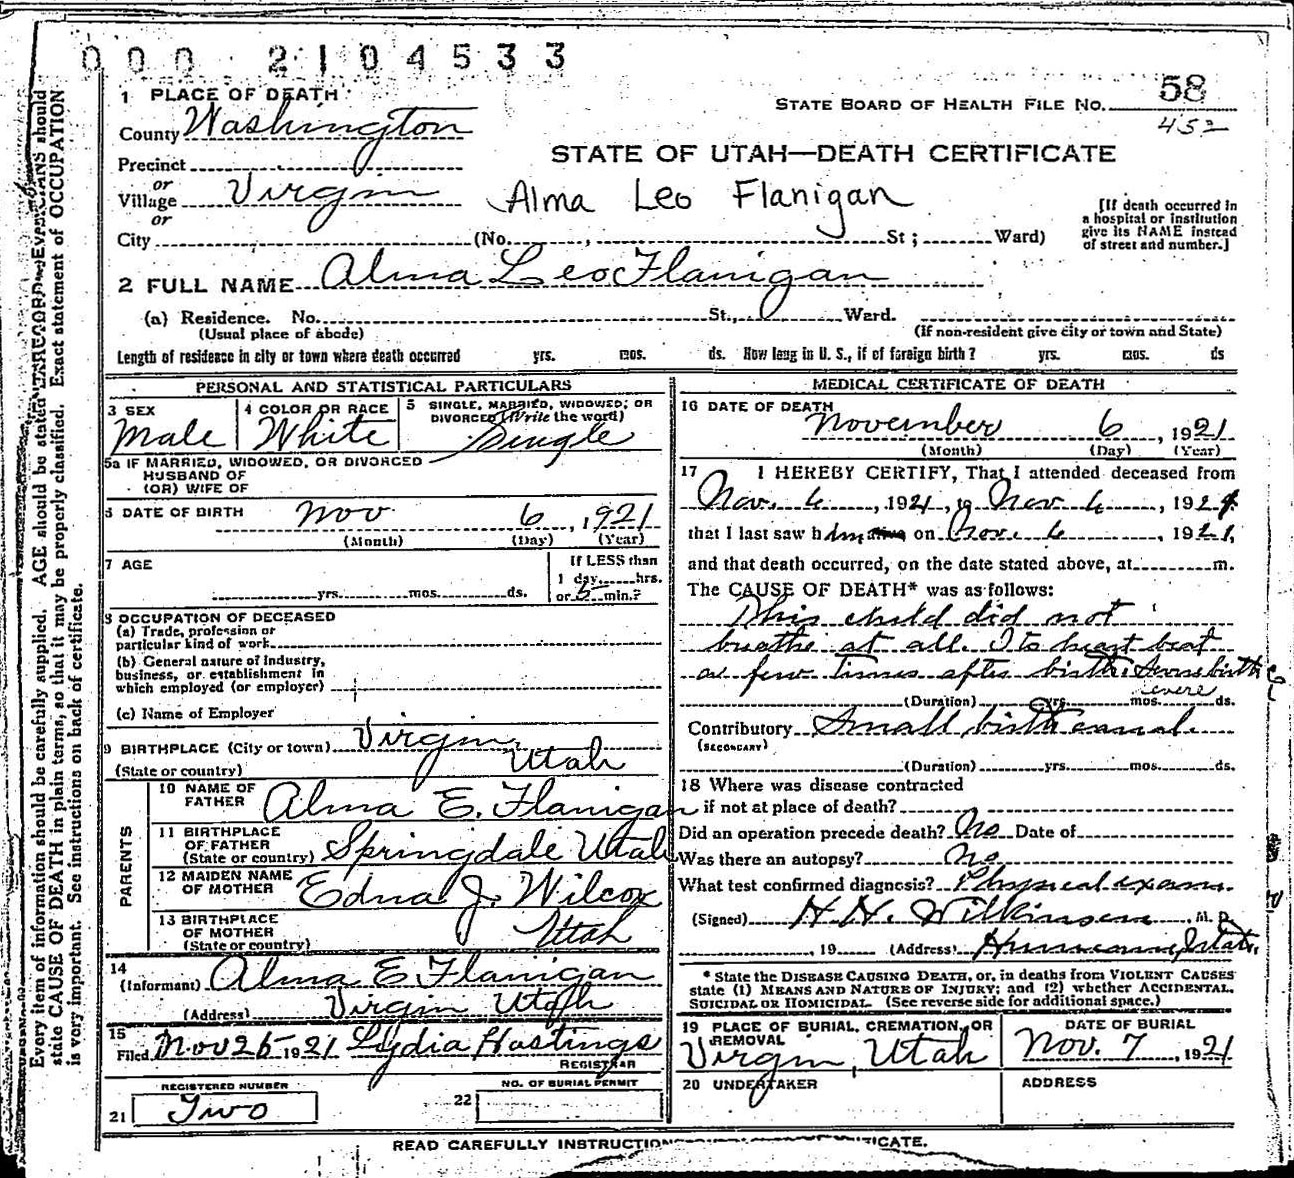 0 0 0 2 1 0 4 5 3 3
58
STATE BOARD OF HEALTH FILE No.
452
1 PLACE OF DEATH
County Washington
STATE OF UTAH—DEATH CERTIFICATE
Precinct
or
Village Virgin
Alma Leo Flanigan
or
City (No. , St ; Ward)
[If death occurred in
a hospital or institution
give its NAME instead
of street and number.]
2 FULL NAME Alma Leo Flanigan
(a) Residence. No. St., Ward.
(Usual place of abode) (If non-resident give city or town and State)
Length of residence in city or town where death occurred yrs. mos. ds. How long in U. S., if of foreign birth? yrs. mos. ds
PERSONAL AND STATISTICAL PARTICULARS
3 SEX
Male
4 COLOR OR RACE
White
5 SINGLE, MARRIED, WIDOWED, OR
DIVORCED (Write the word)
Single
5a IF MARRIED, WIDOWED, OR DIVORCED
HUSBAND OF
(OR) WIFE OF
6 DATE OF BIRTH Nov 6, 1921
(Month) (Day) (Year)
7 AGE
yrs. mos. ds.
If LESS than
1 day hrs.
or 5 min.?
8 OCCUPATION OF DECEASED
(a) Trade, profession or
particular kind of work
(b) General nature of industry,
business, or establishment in
which employed (or employer)
(c) Name of Employer
9 BIRTHPLACE (City or town) Virgin,
(State or country) Utah
PARENTS
10 NAME OF
FATHER Alma E. Flanigan
11 BIRTHPLACE
OF FATHER
(State or country) Springdale Utah
12 MAIDEN NAME
OF MOTHER Edna J. Wilcox
13 BIRTHPLACE
OF MOTHER
(State or country) Utah
14
(Informant) Alma E. Flanigan
(Address) Virgin Utah
15
Filed Nov 25 1921 Lydia Hastings
REGISTRAR
REGISTERED NUMBER
21 Two
NO. OF BURIAL PERMIT
22
MEDICAL CERTIFICATE OF DEATH
16 DATE OF DEATH
November 6, 1921
(Month) (Day) (Year)
17 I HEREBY CERTIFY, That I attended deceased from
Nov. 6, 1921, to Nov 6, 1921
that I last saw him alive on Nov. 6, 1921,
and that death occurred, on the date stated above, at m.
The CAUSE OF DEATH* was as follows:
This child did not
breathe at all. Its heart beat
a few times after birth. birth
severe
(Duration) yrs. mos. ds.
Contributory Small birth canal.
(SECONDARY)
(Duration) yrs. mos. ds.
18 Where was disease contracted
if not at place of death?
Did an operation precede death? No Date of
Was there an autopsy? No
What test confirmed diagnosis? Physical exam.
(Signed) H. H. Wilkinson, M. D.
, 19 (Address) Hurricane, Utah.
* State the DISEASE CAUSING DEATH, or, in deaths from VIOLENT CAUSES
state (1) MEANS AND NATURE OF INJURY; and (2) whether ACCIDENTAL,
SUICIDAL OR HOMICIDAL. (See reverse side for additional space.)
19 PLACE OF BURIAL, CREMATION, OR
REMOVAL
Virgin, Utah
DATE OF BURIAL
Nov. 7, 1921
20 UNDERTAKER
ADDRESS
READ CAREFULLY INSTRUCTION
Every item of information should be carefully supplied. AGE should be stated
state CAUSE OF DEATH in plain terms, so that it may be properly classified. Exact statement of OCCUPATION
is very important. See instructions on back of certificate.